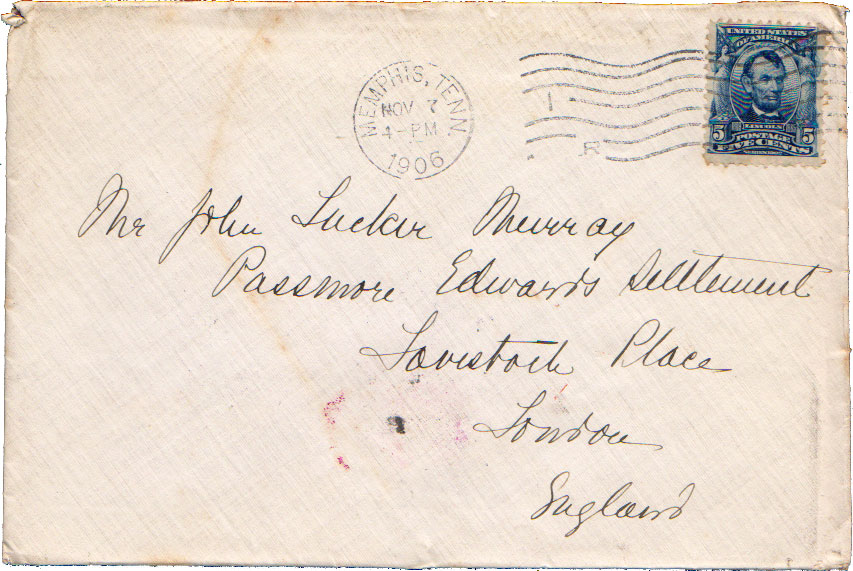 MEMPHIS, TENN.
NOV 7
4-PM
1906
1
R
UNITED STATES
OF AMERICA
LINCOLN
5 POSTAGE 5
FIVE CENTS
Mr John Tucker Murray
Passmore Edwards Settlement
Tavistock Place
London
England